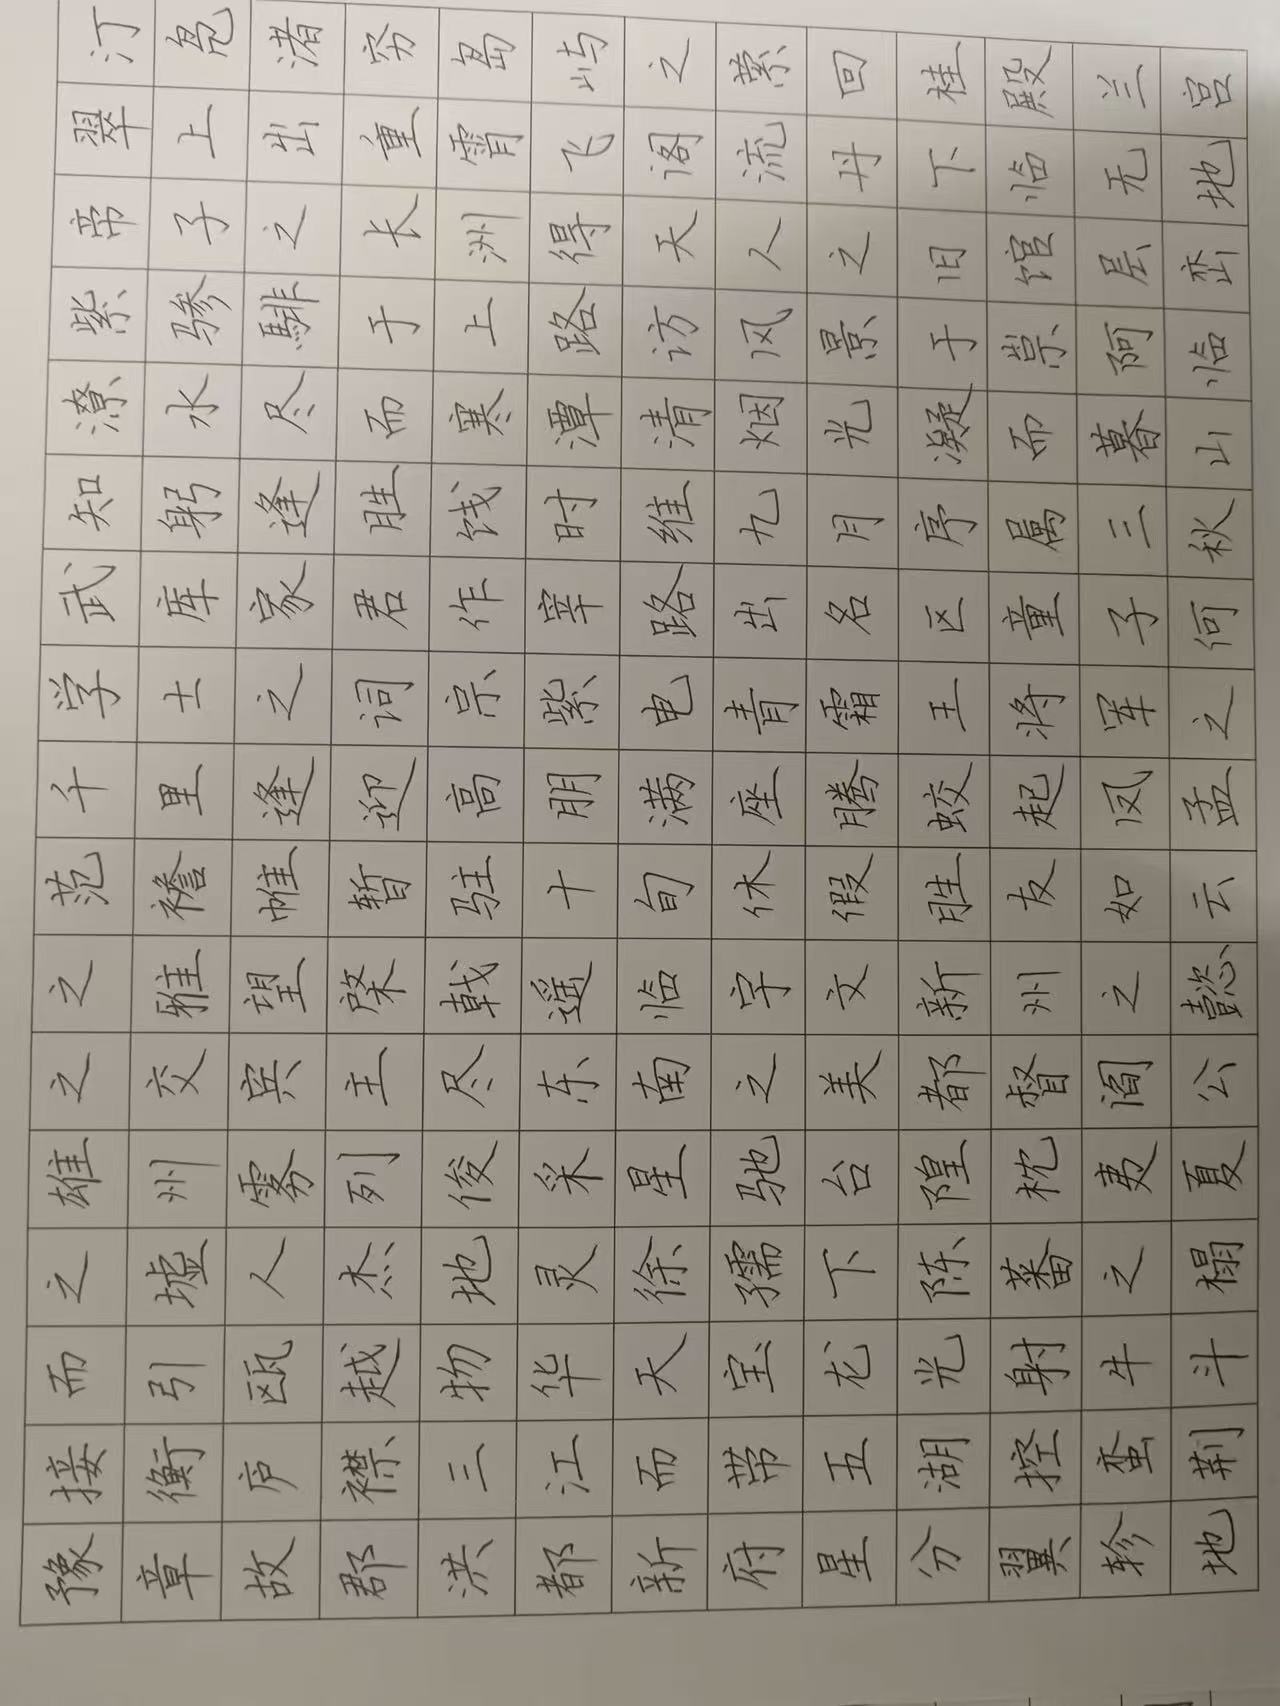 豫章故郡洪都新府星分翼轸地
接衡庐襟三江而带五湖控蛮荆
而引瓯越物华天宝龙光射牛斗
之墟人杰地灵徐孺下陈蕃之榻
雄州雾列俊采星驰台隍枕夷夏
之交宾主尽东南之美都督阎公
之雅望棨戟遥临宇文新州之懿
范襜帷暂驻十旬休假胜友如云
千里逢迎高朋满座腾蛟起凤孟
学士之词宗紫电青霜王将军之
武库家君作宰路出名区童子何
知躬逢胜饯时维九月序属三秋
潦水尽而寒潭清烟光凝而暮山
紫骖騑于上路访风景于崇阿临
帝子之长洲得天人之旧馆层峦
翠上出重霄飞阁流丹下临无地
汀凫渚穷岛屿之萦回桂殿兰宫